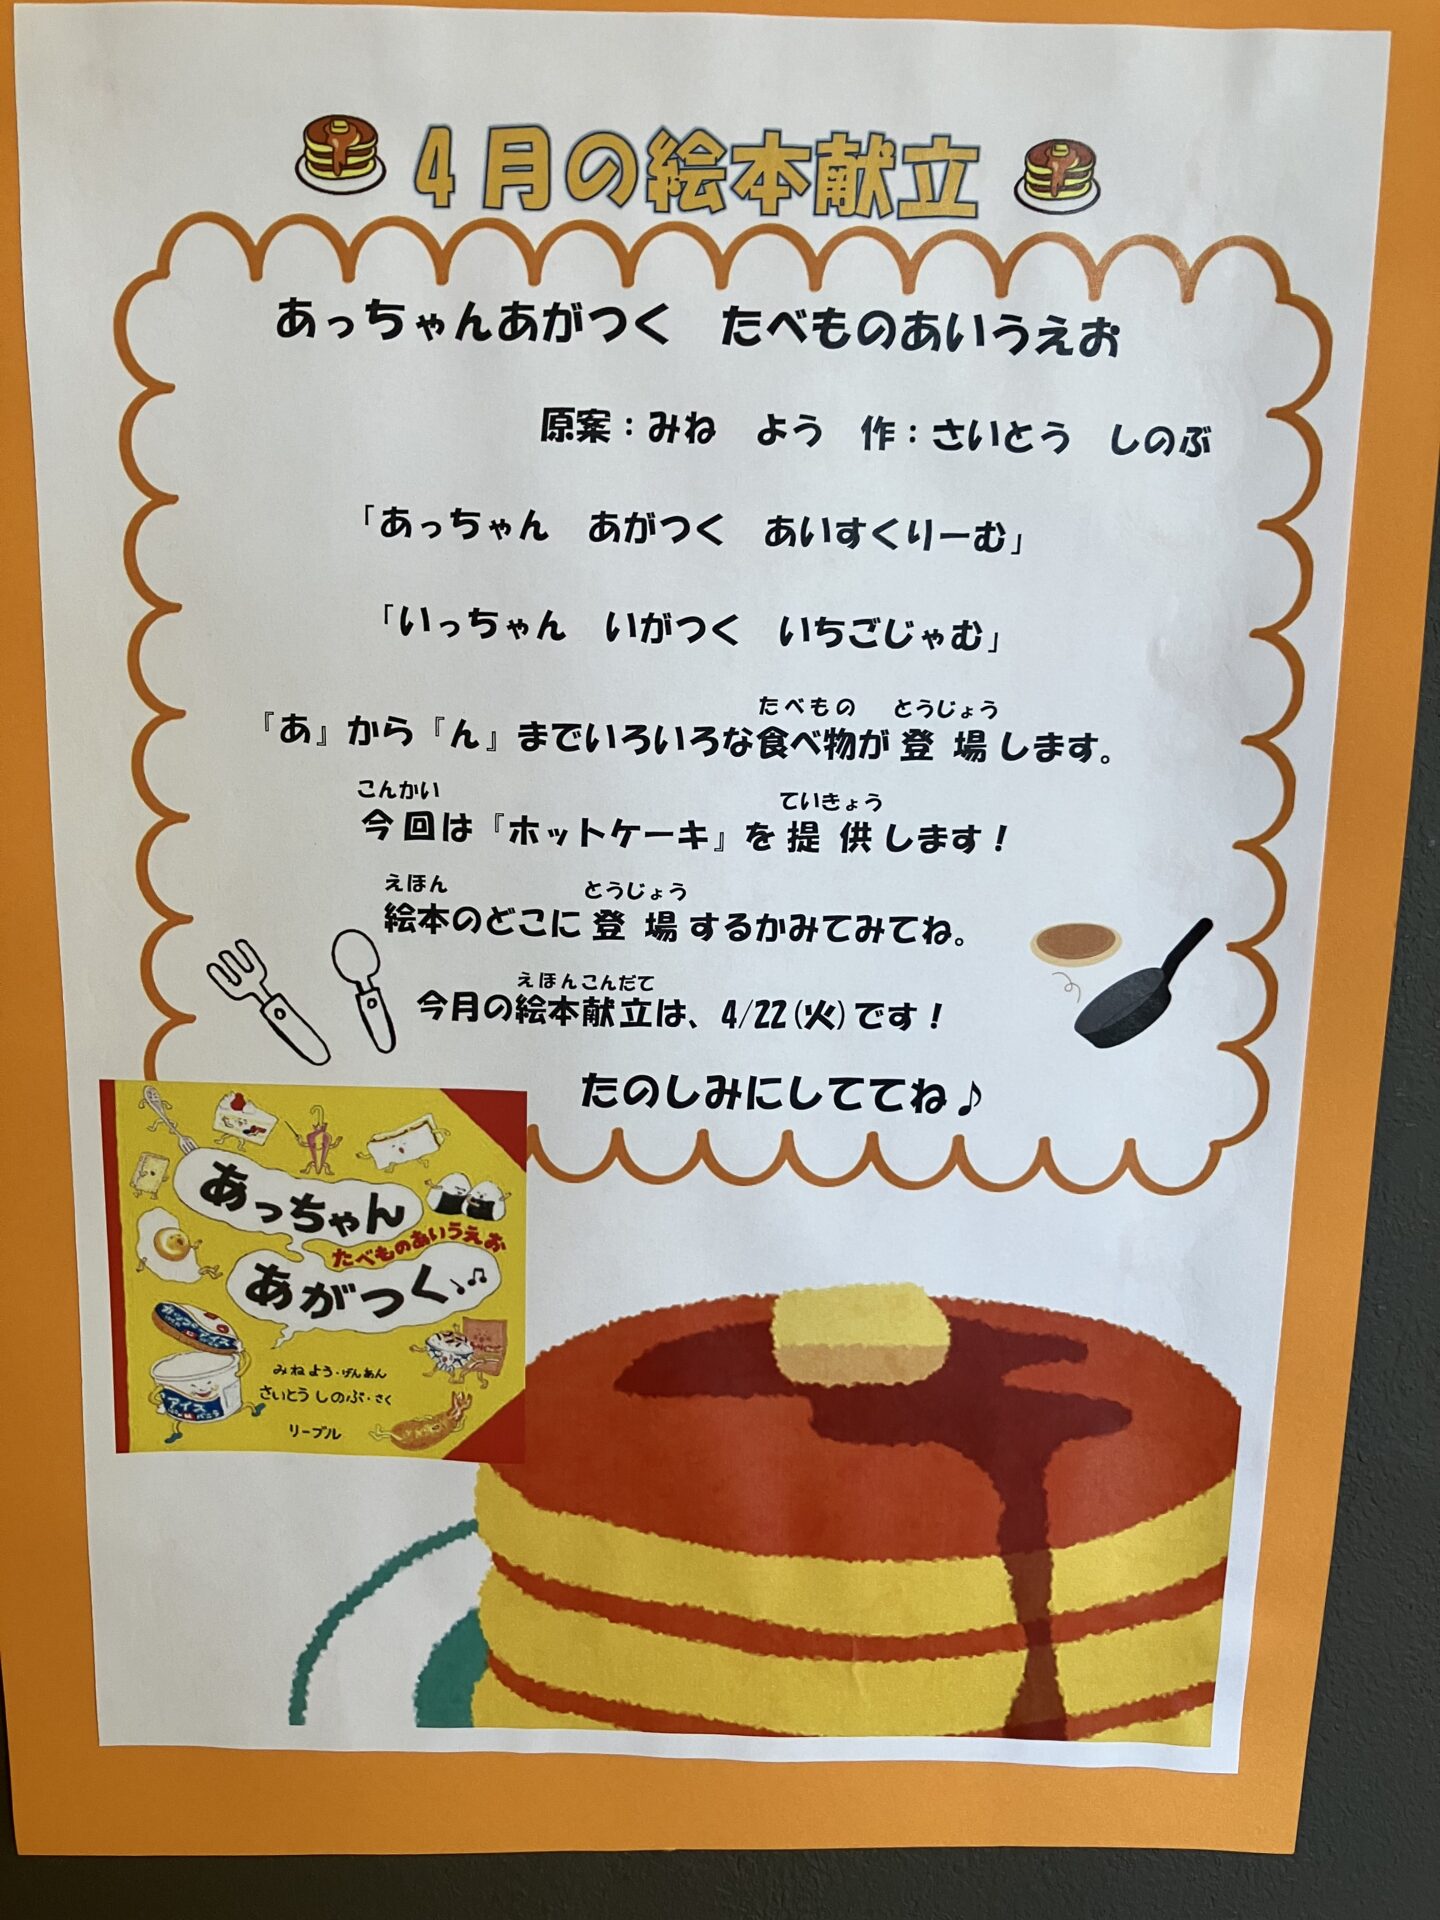 4月の絵本献立
あっちゃんあがつく　たべものあいうえお
原案：みね　よう　作：さいとう　しのぶ
「あっちゃん　あがつく　あいすくりーむ」
「いっちゃん　いがつく　いちごじゃむ」
たべもの　とうじょう
『あ』から『ん』までいろいろな食べ物が登場します。
こんかい　ていきょう
今回は『ホットケーキ』を提供します！
えほん　とうじょう
絵本のどこに登場するかみてみてね。
えほんこんだて
今月の絵本献立は、4/22(火)です！
たのしみにしててね♪
あっちゃん
たべものあいうえお
あがつく
みねよう・げんあん
さいとうしのぶ・さく
リーブル
アイス
バニラ